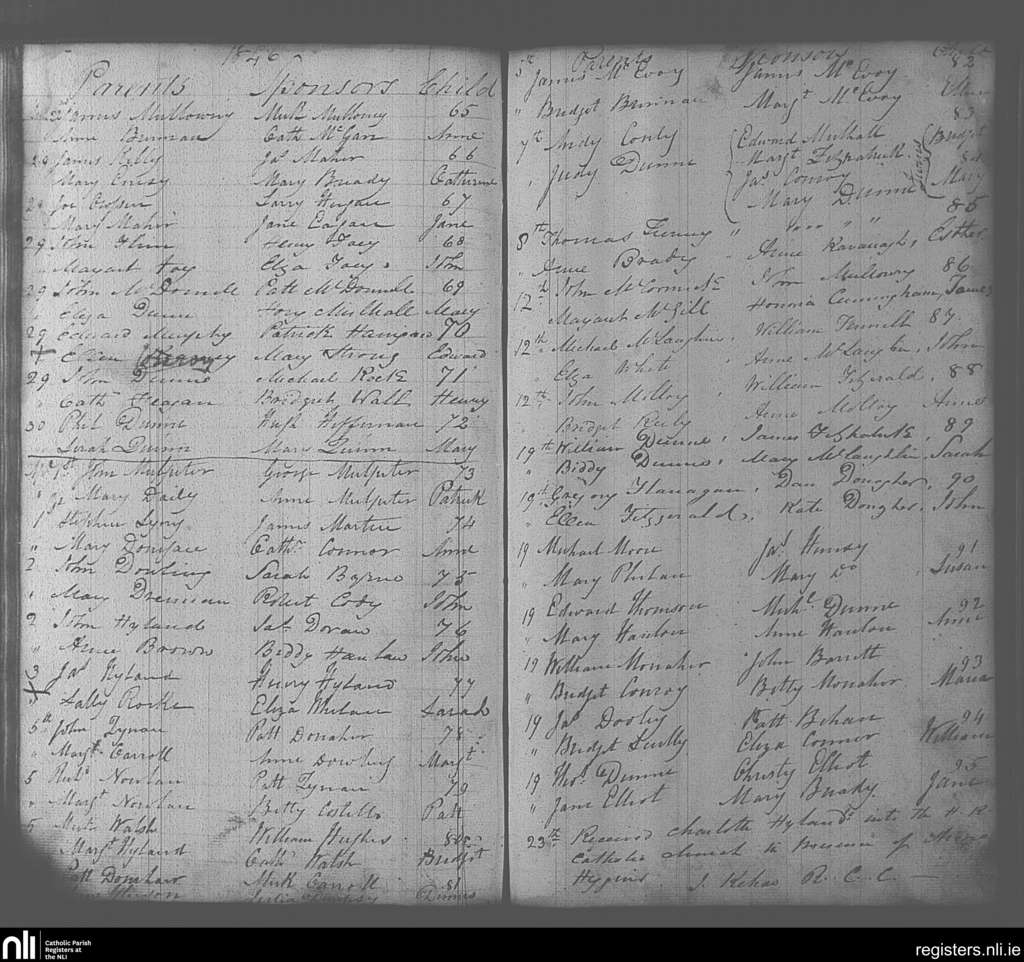 1846
Parents Sponsors Child
James Mullowny Mick Mullowny 65
Anne Brennan Cath McGarr Anne
29 James Kelly Jas Maher 66
Mary Mary Brady Catherine
Joe Larry Hogan 67
Mary Maher Jane Eagan Jane
29 John Henry Foey 68
Margart Foy Elza Foey John
29 John McDonnell Patt McDonnell 69
Eliza Dunn Mulhall Mary
29 Edward Murphy Patrick 70
Ellen Mary Strong Edward
29 John Dunne Michael Rock 71
" Cath Heagan Bridget Wall Henry
30 Phil Dunne Hugh Heffernan 72
Sarah Quinn Mary Quinn Mary
1st Tom Mulpeter George Mulpeter 73
" Mary Daily Anne Mulpeter Patrick
1st Stephen Lyons James Martin 74
" Mary Cathr Connor Anne
2 John Dowling Sarah Byrne 75
" Mary Drennan Robert Cody John
2 John Hyland Jas Doran 76
" Anne Brown Biddy Hanlan John
3 Jas Hyland Henry Hyland 77
" Sally Rorke Eliza Whelan Sarah
5th John Tynan Patt Donaher 78
" Margt Carroll Anne Dowling Margt
5 Nowlan Patt Tynan 79
" Margt Nowlan Betty Costello Patt
5 Walsh William Hughes 80
" Margt Hyland Cath Walsh Bridget
Patt Mick Carroll 81
Julia Dempsey Dennis
Parents Sponsors
5th James McEvoy James McEvoy 82
" Bridget Brennan Margt McEvoy Ellen
7th Andy Conly Edward Mulhall 83
" Judy Dunne Margt Fitzpatrick Bridget
Jas Conroy 84
Mary Dunne Mary
8th Thomas Feeney 85
" Anne Brady Anne Kavanagh, Esther
12th John McCormick John Mullowny 86
" Margaret McGill Honoria Cunningham, James
12th Michael McLaughlin, William Fennell 87
" Elza White Anne McLaughlin, John
12th John Molloy William Fitzgerald, 88
" Bridget Anne Molloy Annes
19th William Dunne, James Fitzpatrick, 89
" Biddy Dunne, Mary McLaughlin, Sarah
19th Gregory Flanagan, Dan Donagher, 90
" Ellen Fitzgerald, Kate John
19 Michael Moore Jas 91
" Mary Phelan Mary Do Susan
19 Edward Thomson Michl Dunne 92
" Mary Hanlon Anne Hanlon Anne
19 William Monaher John Barrett 93
" Bridget Conroy Betty Monaher Maria
19 Jas Dooly Patt Behan 94
" Bridget Scully Eliza Connor William
19 Thos Dunne Christy Elliot 95
" Jane Elliot Mary Jane
23th Received Charlotte Hyland into the H R
Catholic Church in Presence of
Higgins. J. Kehoe R. C. C.
nli Catholic Parish
Registers at
the NLI
registers.nli.ie